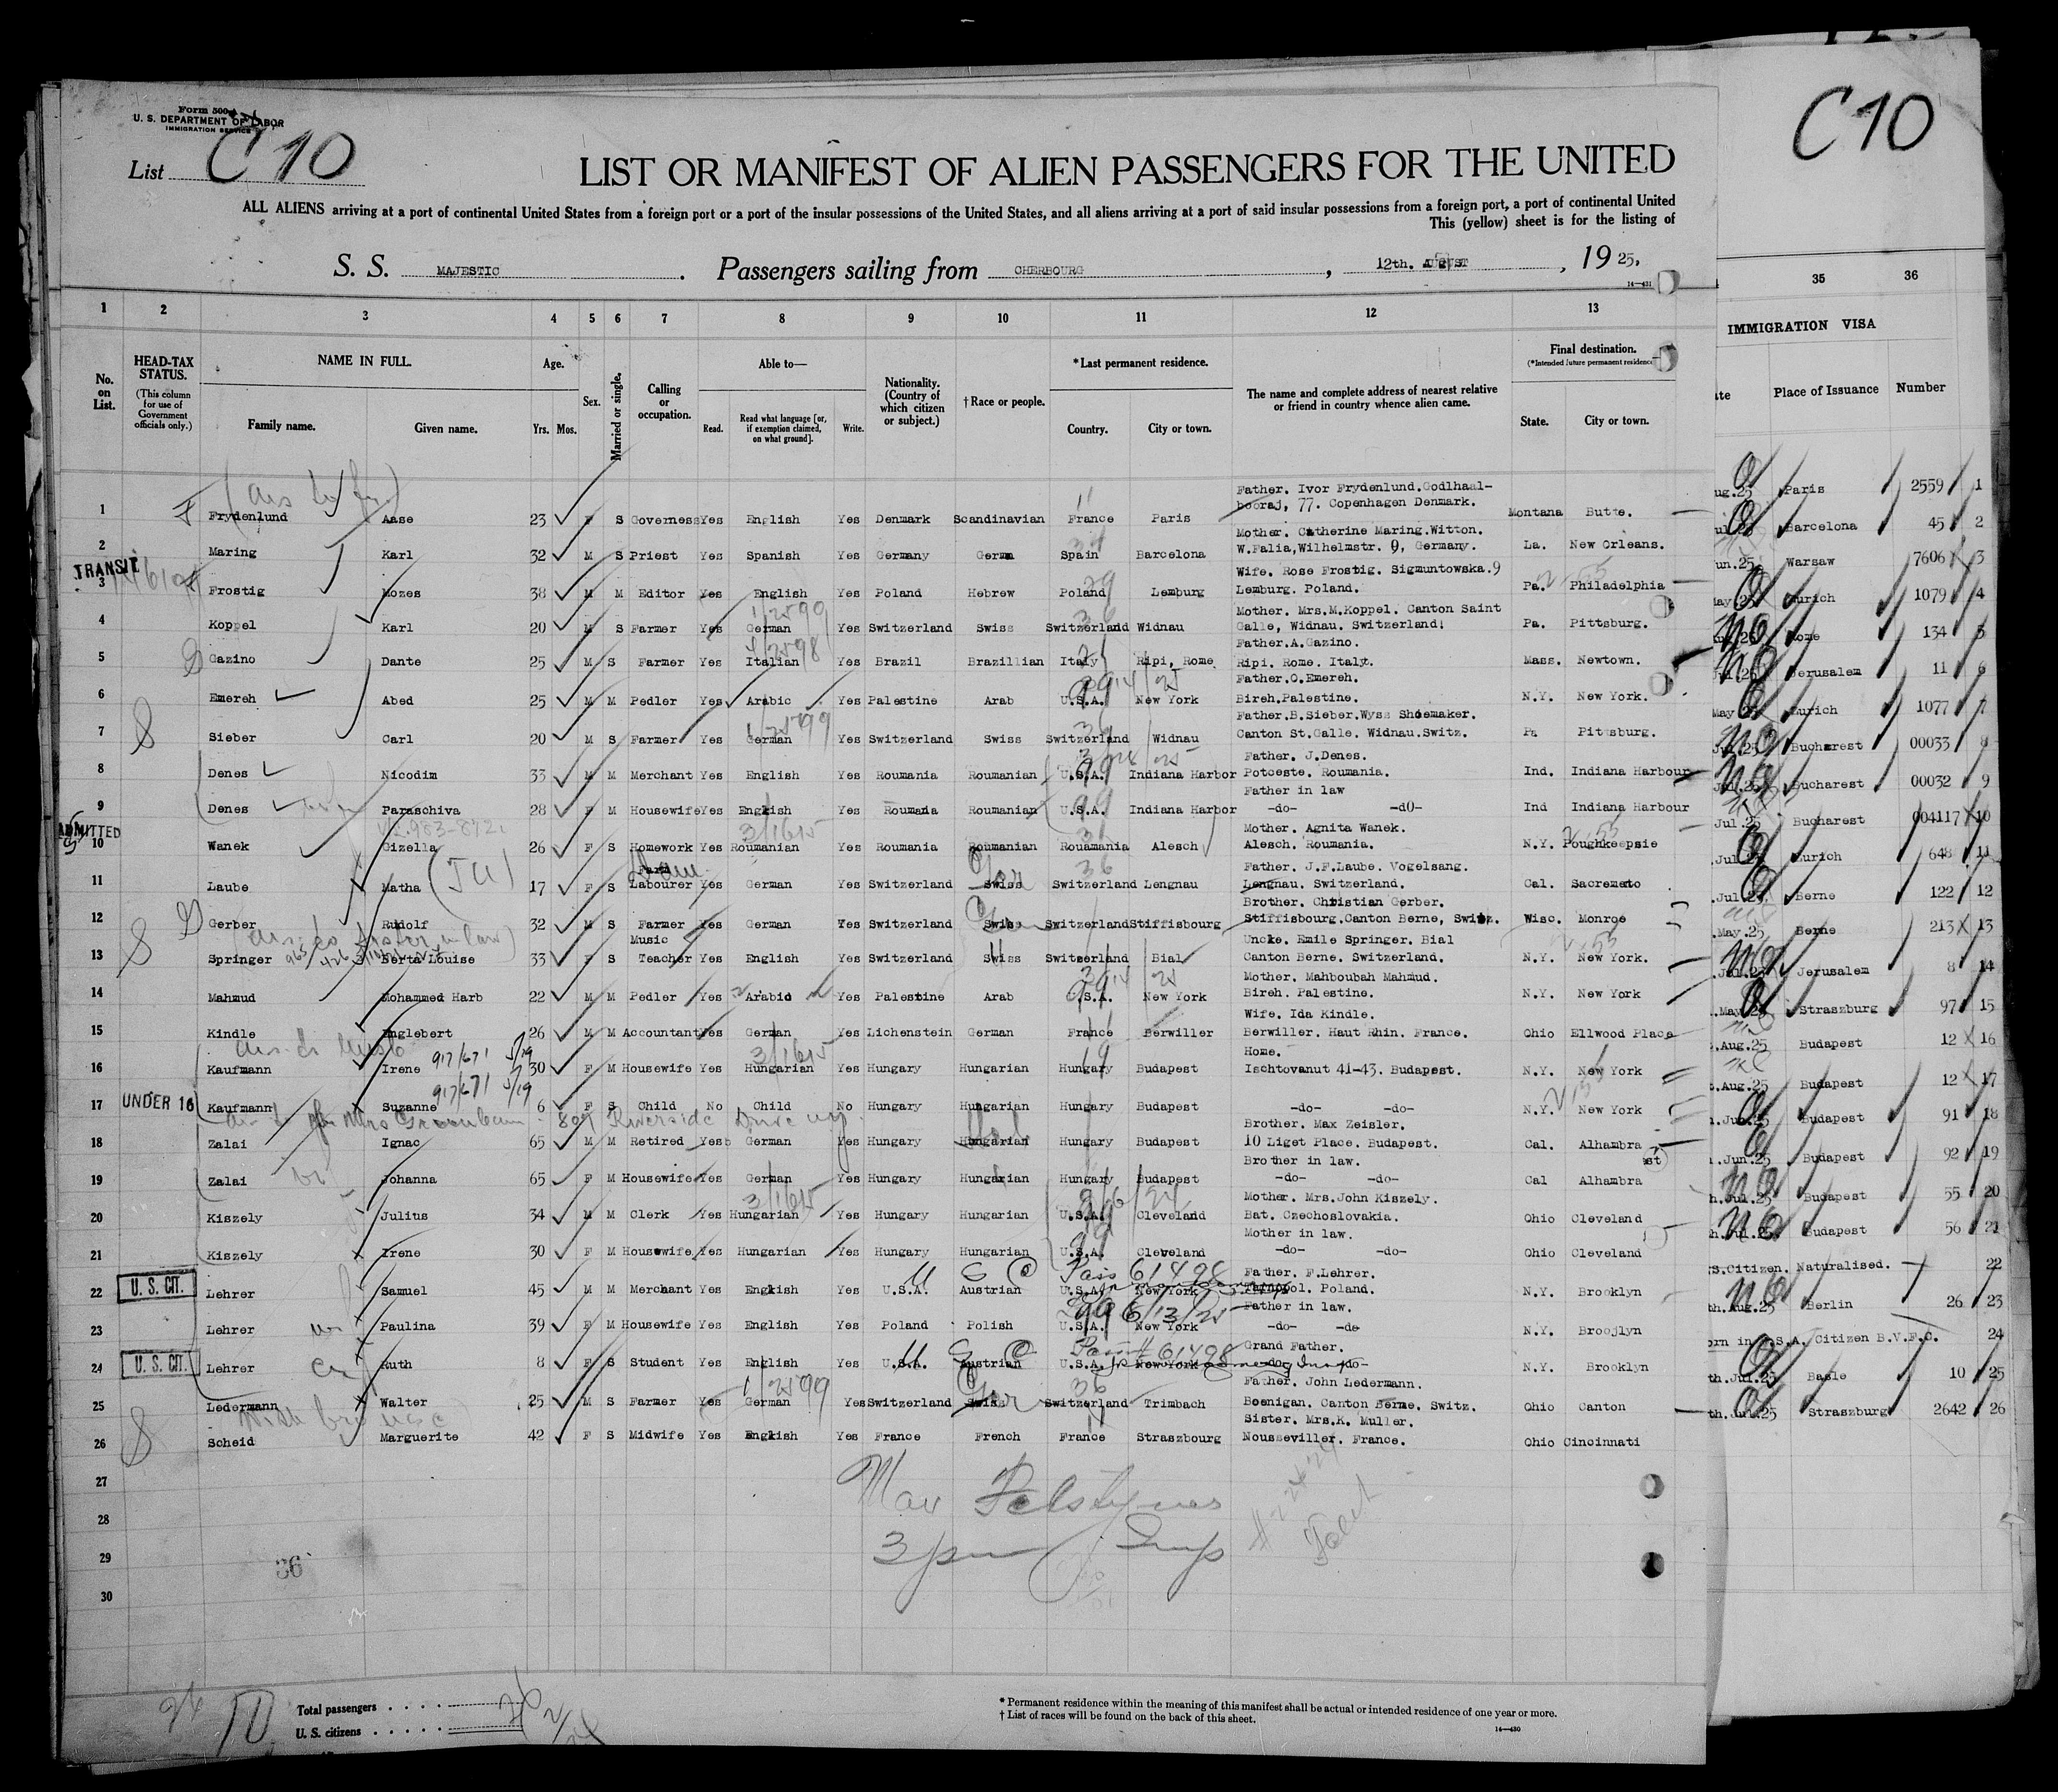 Form 500
U. S. DEPARTMENT OF LABOR
IMMIGRATION SERVICE
List C 10
C 10
LIST OR MANIFEST OF ALIEN PASSENGERS FOR THE UNITED
ALL ALIENS arriving at a port of continental United States from a foreign port or a port of the insular possessions of the United States, and all aliens arriving at a port of said insular possessions from a foreign port, a port of continental United
This (yellow) sheet is for the listing of
S. S. MAJESTIC . Passengers sailing from CHERBOURG , 12th. AUGUST , 19 25.
14—431
1 2 3 4 5 6 7 8 9 10 11 12 13 35 36
No. on List.
HEAD-TAX STATUS.
(This column for use of Government officials only.)
NAME IN FULL.
Family name. Given name.
Age.
Yrs. Mos.
Sex.
Married or single.
Calling or occupation.
Able to—
Read. Read what language [or, if exemption claimed, on what ground]. Write.
Nationality. (Country of which citizen or subject.)
†Race or people.
*Last permanent residence.
Country. City or town.
The name and complete address of nearest relative or friend in country whence alien came.
Final destination.
(*Intended future permanent residence
State. City or town.
IMMIGRATION VISA
Place of Issuance Number
1 Frydenlund Aase 23 F S Governess Yes English Yes Denmark Scandinavian France Paris Father. Ivor Frydenlund. Godlhaal-booraj, 77. Copenhagen Denmark. Montana Butte. Paris 2559 1
2 Maring Karl 32 M S Priest Yes Spanish Yes Germany Germa Spain Barcelona Mother. Catherine Maring. Witton. W.Falia, Wilhelmstr. 9, Germany. La. New Orleans. Barcelona 45 2
TRANSIT
3 Frostig Mozes 38 M M Editor Yes English Yes Poland Hebrew Poland Lemburg Wife. Rose Frostig. Sigmuntowska.9 Lemburg. Poland. Pa. Philadelphia Warsaw 7606 3
4 Koppel Karl 20 M S Farmer Yes German Yes Switzerland Swiss Switzerland Widnau Mother. Mrs.M.Koppel. Canton Saint Galle, Widnau. Switzerland. Pa. Pittsburg. Zurich 1079 4
5 Gazino Dante 25 M S Farmer Yes Italian Yes Brazil Brazillian Italy Ripi, Rome Father.A.Gazino. Ripi. Rome. Italy. Mass. Newtown. Rome 134 5
6 Emereh Abed 25 M M Pedler Yes Arabic Yes Palestine Arab U.S.A. New York Father.O.Emereh. Bireh.Palestine. N.Y. New York. Jerusalem 11 6
7 Sieber Carl 20 M S Farmer Yes German Yes Switzerland Swiss Switzerland Widnau Father.B.Sieber.Wyss Shoemaker. Canton St.Galle. Widnau.Switz. Pa Pittsburg. Zurich 1077 7
8 Denes Nicodim 33 M M Merchant Yes English Yes Roumania Roumanian U.S.A. Indiana Harbor Father. J.Denes. Potceste. Roumania. Ind. Indiana Harbour Bucharest 00033 8
9 Denes Paraschiva 28 F M Housewife Yes English Yes Roumania Roumanian U.S.A. Indiana Harbor Father in law -do- -dO- Ind Indiana Harbour Bucharest 00032 9
ADMITTED
10 Wanek Gizella 26 F S Homework Yes Roumanian Yes Roumania Roumanian Rouamania Alesch Mother. Agnita Wanek. Alesch. Roumania. N.Y. Poughkeepsie Jul.25 Bucharest 004117 10
11 Laube Matha 17 F S Farm Labourer Yes German Yes Switzerland Swiss Switzerland Lengnau Father. J.F.Laube. Vogelsang. Lengnau. Switzerland. Cal. Sacremato Jul.25 Zurich 648 11
12 Gerber Rudolf 32 M S Farmer Yes German Yes Switzerland Swiss Switzerland Stiffisbourg Brother. Christian Gerber. Stiffisbourg.Canton Berne, Switz. Wisc. Monroe Jul.25 Berne 122 12
13 Springer Berta Louise 33 F S Music Teacher Yes English Yes Switzerland Swiss Switzerland Bial Uncle. Emile Springer. Bial Canton Berne. Switzerland. N.Y. New York. May.25 Berne 213 13
14 Mahmud Mohammed Harb 22 M M Pedler Yes Arabic Yes Palestine Arab U.S.A. New York Mother. Mahboubah Mahmud. Bireh. Palestine. N.Y. New York Jul.25 Jerusalem 8 14
15 Kindle Englebert 26 M M Accountant Yes German Yes Lichenstein German France Berwiller Wife. Ida Kindle. Berwiller. Haut Rhin. France. Ohio Ellwood Place May.25 Strasmburg 97 15
16 Kaufmann Irene 917/671 5/19 30 F M Housewife Yes Hungarian Yes Hungary Hungarian Hungary Budapest Home. Ischtovanut 41-43. Budapest. N.Y. New York Aug.25 Budapest 12 16
UNDER 16
17 Kaufmann Suzanne 917/671 5/19 6 F S Child No Child No Hungary Hungarian Hungary Budapest -do- -do- N.Y. New York Aug.25 Budapest 12 17
Mrs Greenbaum - 809 Riverside Drive ny.
18 Zalai Ignac 65 M M Retired Yes German Yes Hungary Hungarian Hungary Budapest Brother. Max Zeisler. 10 Liget Place. Budapest. Cal. Alhambra Budapest 91 18
19 Zalai Johanna 65 F M Housewife Yes German Yes Hungary Hungarian Hungary Budapest Brother in law. -do- -do- Cal Alhambra Jun.25 Budapest 92 19
20 Kiszely Julius 34 M M Clerk Yes Hungarian Yes Hungary Hungarian U.S.A. Cleveland Mother. Mrs.John Kiszely. Bat. Czechoslovakia. Ohio Cleveland Jul.25 Budapest 55 20
21 Kiszely Irene 30 F M Housewife Yes Hungarian Yes Hungary Hungarian U.S.A. Cleveland Mother in law. -do- -do- Ohio Cleveland Jul.25 Budapest 56 21
U. S. CIT.
22 Lehrer Samuel 45 M M Merchant Yes English Yes U.S.A. Austrian U.S.A. New York Father. F.Lehrer. Tarnopol. Poland. N.Y. Brooklyn S.Citizen. Naturalised. 22
Pass 61498
23 Lehrer Paulina 39 F M Housewife Yes English Yes Poland Polish U.S.A. New York Father in law. -do- -do N.Y. Broojlyn Aug.25 Berlin 26 23
U. S. CIT.
24 Lehrer Ruth 8 F S Student Yes English Yes U.S.A. Austrian U.S.A. New York Grand Father. -do- -do- N.Y. Brooklyn orn in U.S.A. Citizen B.V.F.C. 24
Pass # 61498
25 Ledermann Walter 25 M S Farmer Yes German Yes Switzerland Swiss Switzerland Trimbach Father. John Ledermann. Boenigan. Canton Berne. Switz. Ohio Canton Jul.25 Basle 10 25
26 Scheid Marguerite 42 F S Midwife Yes English Yes France French France Straszbourg Sister. Mrs.K. Muller. Nousseviller. France. Ohio Cincinnati Jul.25 Straszburg 2642 26
27
28
29
30
36
3 pm Insp
Total passengers
U. S. citizens
* Permanent residence within the meaning of this manifest shall be actual or intended residence of one year or more.
† List of races will be found on the back of this sheet.
14—430